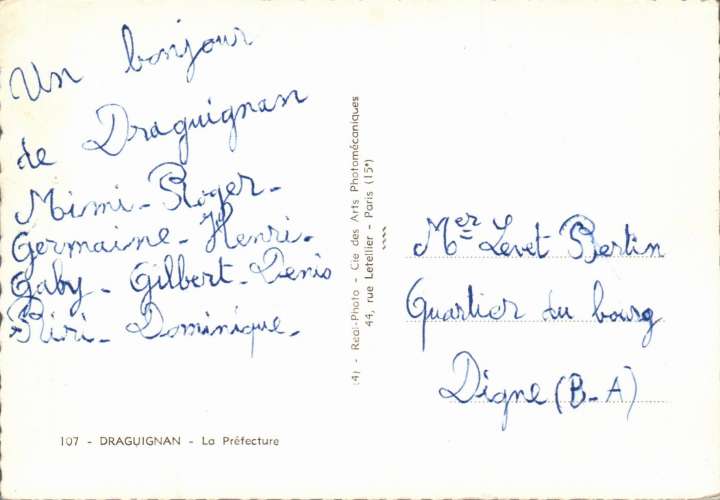 Un bonjour
de Draguignan
Mimi - Roger -
Germaine - Henri -
Gaby - Gilbert - Denis
Riri - Dominique -
107 - DRAGUIGNAN - La Préfecture
(4) - Real-Photo - Cie des Arts Photomécaniques
44, rue Letellier - Paris (15e)
Mer Levet Bertin
Quartier du bourg
Digne (B-A)